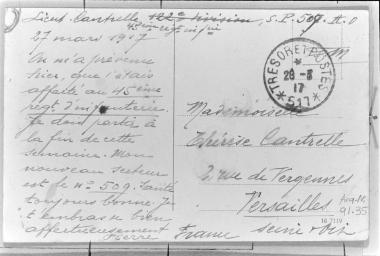 Lieut. Cantrelle, 122e division, S.P. 509. A.O
45ème régt. d'infie
27 mars 1917
On m'a prévenu
hier, que j'étais
affecté au 45ème
régt. d'infanterie.
Je dois partir à
la fin de cette
semaine. Mon
nouveau secteur
est le n° 509. Santé
toujours bonne. Je
t'embrasse bien
affectueusement
Pierre
TRESOR ET POSTES
28-3
17
*517*
Mademoiselle
Thérèse Cantrelle
2, rue de Vergennes
Versailles
Seine & Oise
France
91-35